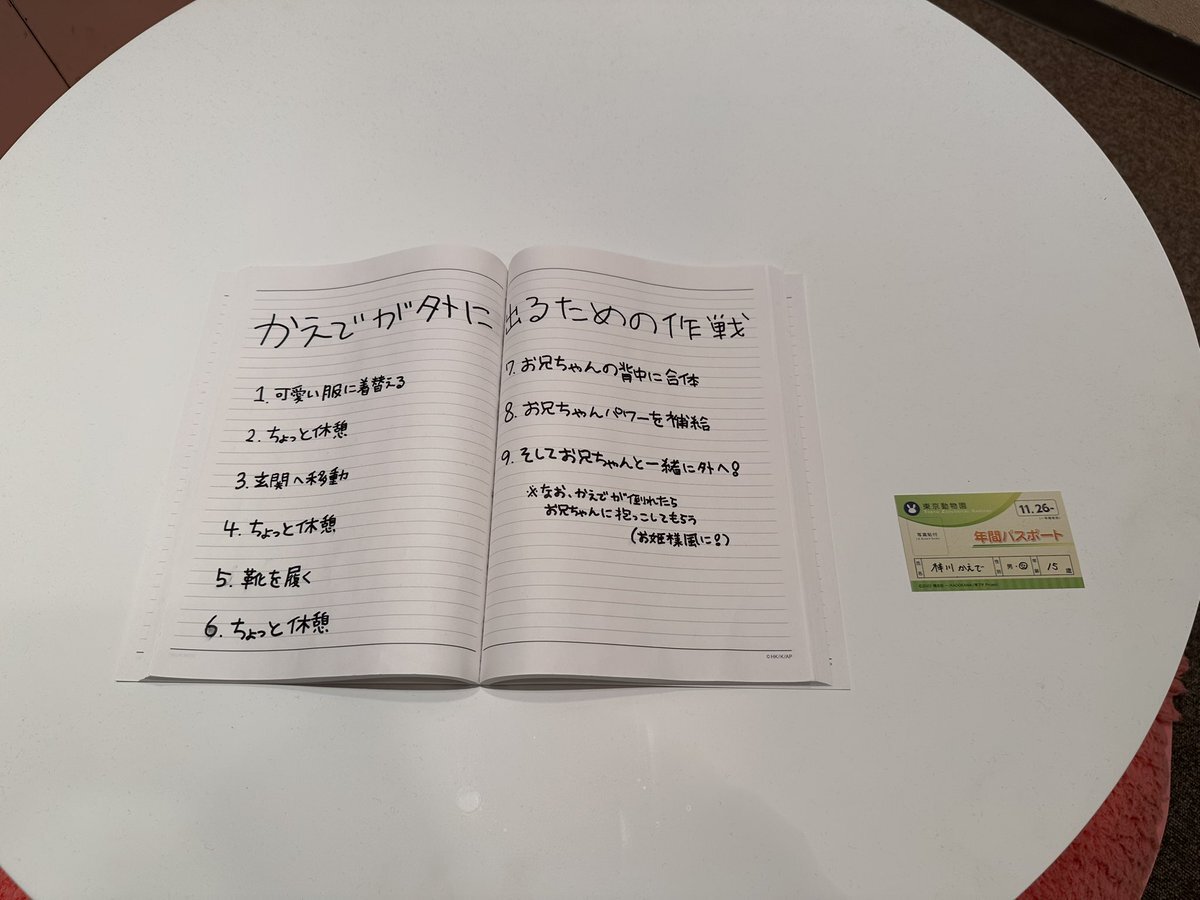 かえでが外に出るための作戦
1. 可愛い服に着替える
2. ちょっと休憩
3. 玄関へ移動
4. ちょっと休憩
5. 靴を履く
6. ちょっと休憩
7. お兄ちゃんの背中に合体
8. お兄ちゃんパワーを補給
9. そしてお兄ちゃんと一緒に外へ!
※なお、かえでが倒れたら
お兄ちゃんに抱っこしてもらう
(お姫様風に!)
©HK/K/AP
東京動物園
11.26-
写真貼付
年間パスポート
氏名 梓川かえで 性別 男・女 年齢 15 歳